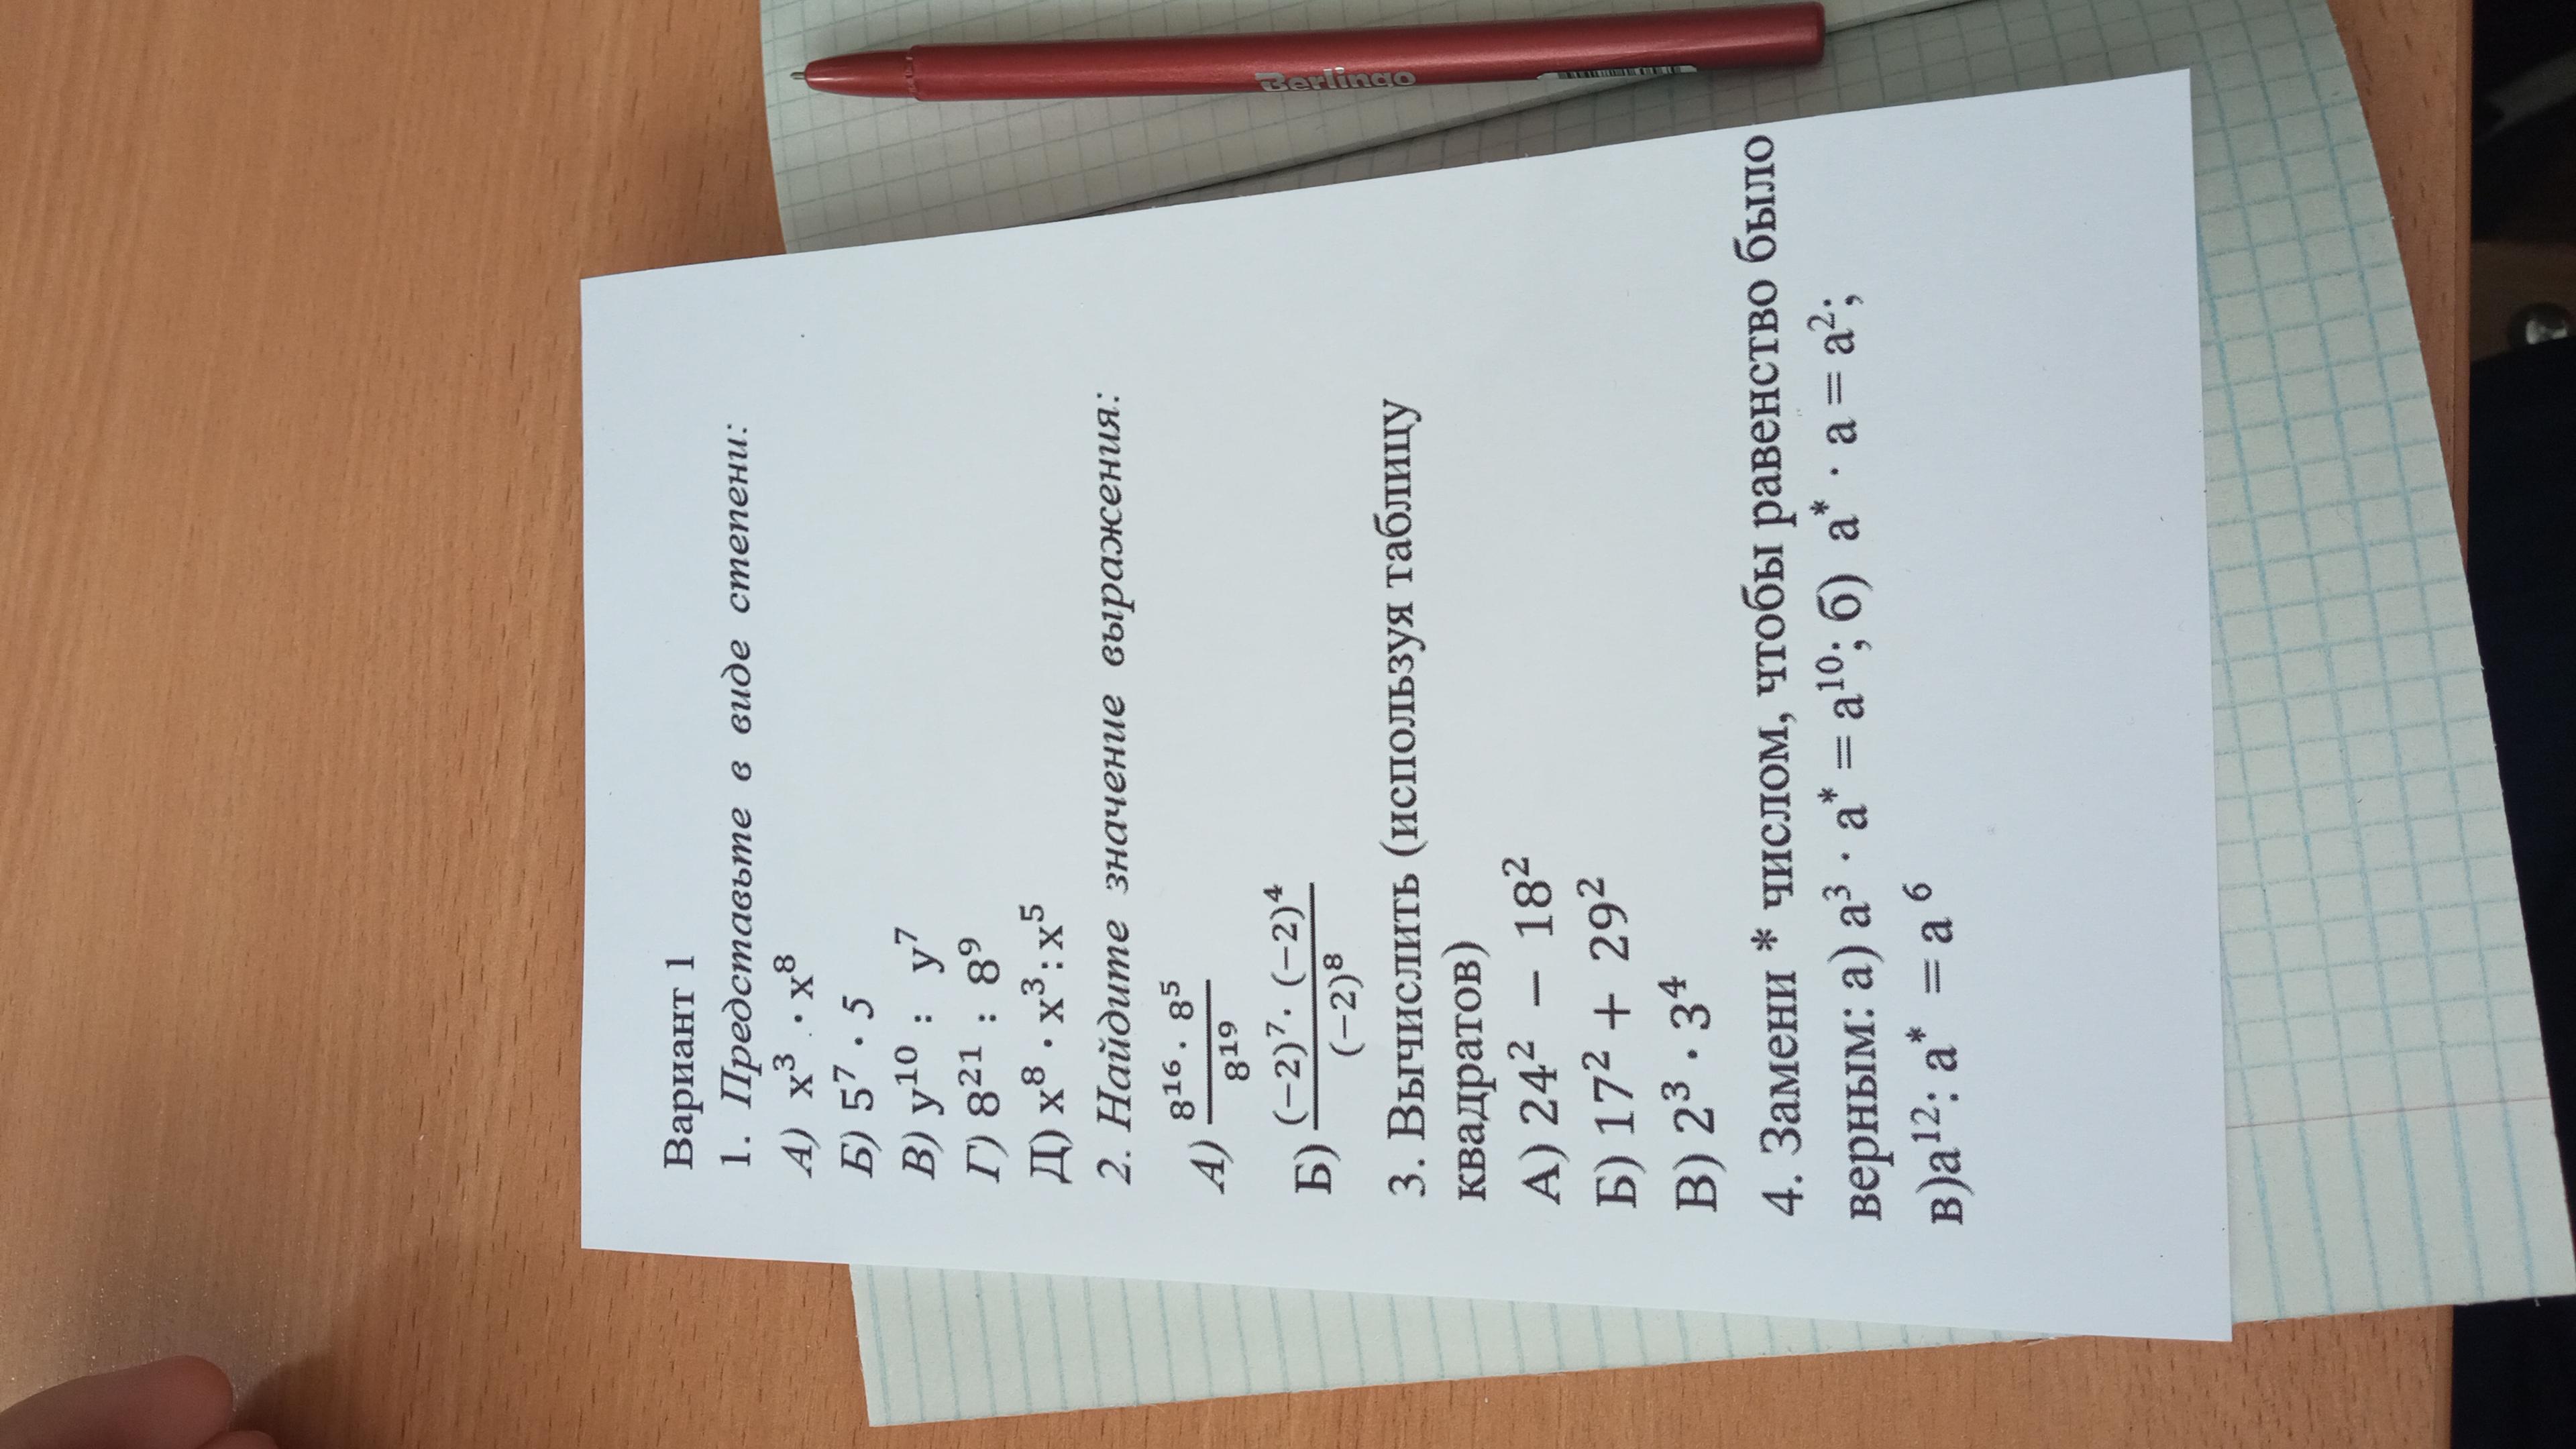 Berlingo
Вариант 1
1. Представьте в виде степени:
А) x³ · x⁸
Б) 5⁷ · 5
В) y¹⁰ : y⁷
Г) 8²¹ : 8⁹
Д) x⁸ · x³ : x⁵
2. Найдите значение выражения:
А) \frac{8¹⁶ · 8⁵}{8¹⁹}
Б) \frac{(−2)⁷ · (−2)⁴}{(−2)⁸}
3. Вычислить (используя таблицу
квадратов)
А) 24² − 18²
Б) 17² + 29²
В) 2³ · 3⁴
4. Замени * числом, чтобы равенство было
верным: а) a³ · a* = a¹⁰; б) a* · a = a²;
в)a¹²: a* = a⁶